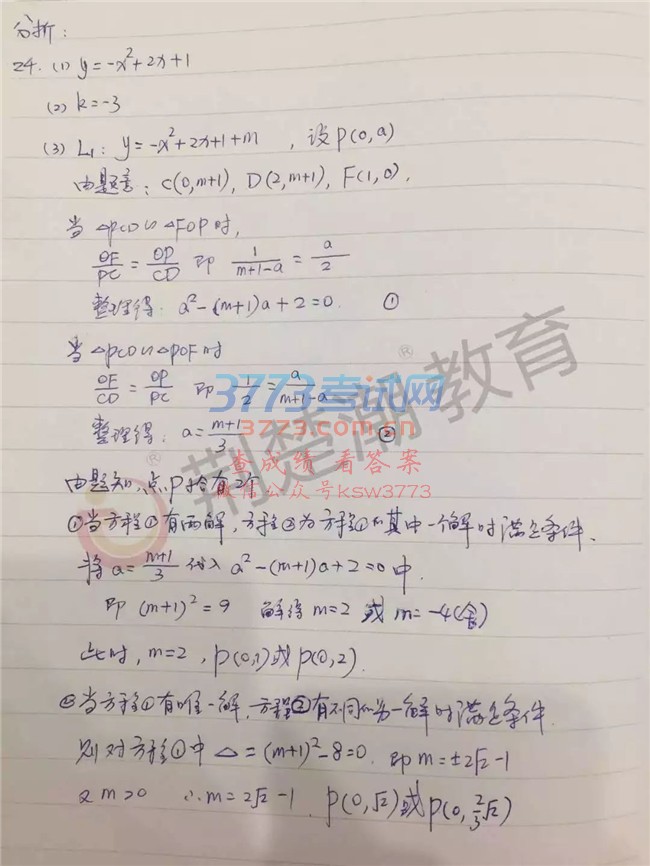 分析:
24. (1) y=-x²+2x+1
(2) k=-3
(3) L₁: y=-x²+2x+1+m ,设P(0,a)
由题意: C(0,m+1), D(2,m+1), F(1,0).
当△PCD∽△FOP时,
OF/PC = OP/CD 即 1/(m+1-a) = a/2
整理得: a²-(m+1)a+2=0. ①
当△PCD∽△POF时
OF/CD = OP/PC 即 1/2 = a/(m+1-a)
整理得: a=(m+1)/3 ②
由题知,点P恰有2个
①当方程①有两解,方程②为方程①的其中一个解时满足条件.
将a=(m+1)/3代入a²-(m+1)a+2=0中.
即 (m+1)²=9 解得m=2 或 m=-4(舍)
此时, m=2, P(0,1)或P(0,2).
②当方程①有唯一解,方程②有不同的另一解时满足条件.
则对方程①中 △=(m+1)²-8=0. 即m=±2√2-1
又m>0 ∴m=2√2-1. P(0,√2)或P(0,2/3√2)
荆楚潮教育
®
®
3773考试网
3773.com.cn
查成绩 看答案
微信公众号ksw3773